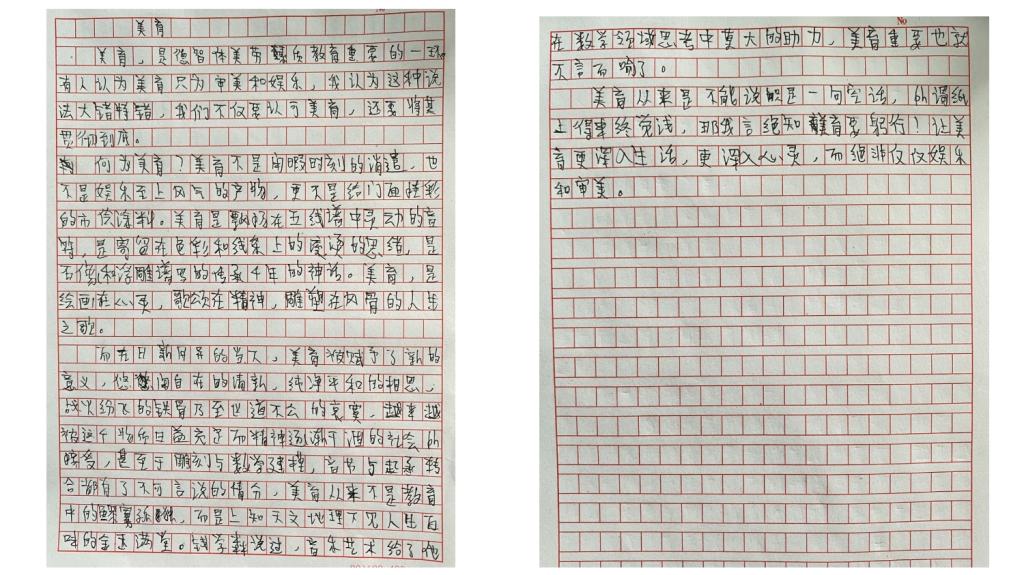 No
美育
美育，是德智体美劳素质教育重要的一环
有人认为美育只为审美和娱乐，我认为这种说
法大错特错，我们不仅要认可美育，还要将其
贯彻到底。
何为美育？美育不是闲暇时刻的消遣，也
不是娱乐至上风气的产物，更不是给门面增彩
的市侩涂料。美育是飘扬在五线谱中灵动的音
符，是寄留在色彩和线条上的变通的思绪，是
石像和浮雕谱写的传承千年的神话。美育，是
绘画在心灵，歌颂在精神，雕塑在风骨的人生
之歌。
而在日新月异的当下，美育被赋予了新的
意义，悠闲自在的清新，纯净平和的相思，
战火纷飞的铁骨乃至世道不公的哀窦，越来越
被这个物质日益充足而精神逐渐干涸的社会所
接受，甚至于雕刻与数学建模，音节与起承转
合都有了不可言说的情分，美育从来不是教育
中的，而是上知天文地理下见人生百
味的金玉满堂。钱学森说过，音乐艺术给了他
在数学领域思考中莫大的助力，美育重要也就
不言而喻了。
美育从来是不能说明是一句空话，所谓纸
上得来终觉浅，那我言绝知美育要躬行！让美
育更深入生活，更深入心灵，而绝非仅仅娱乐
和审美。